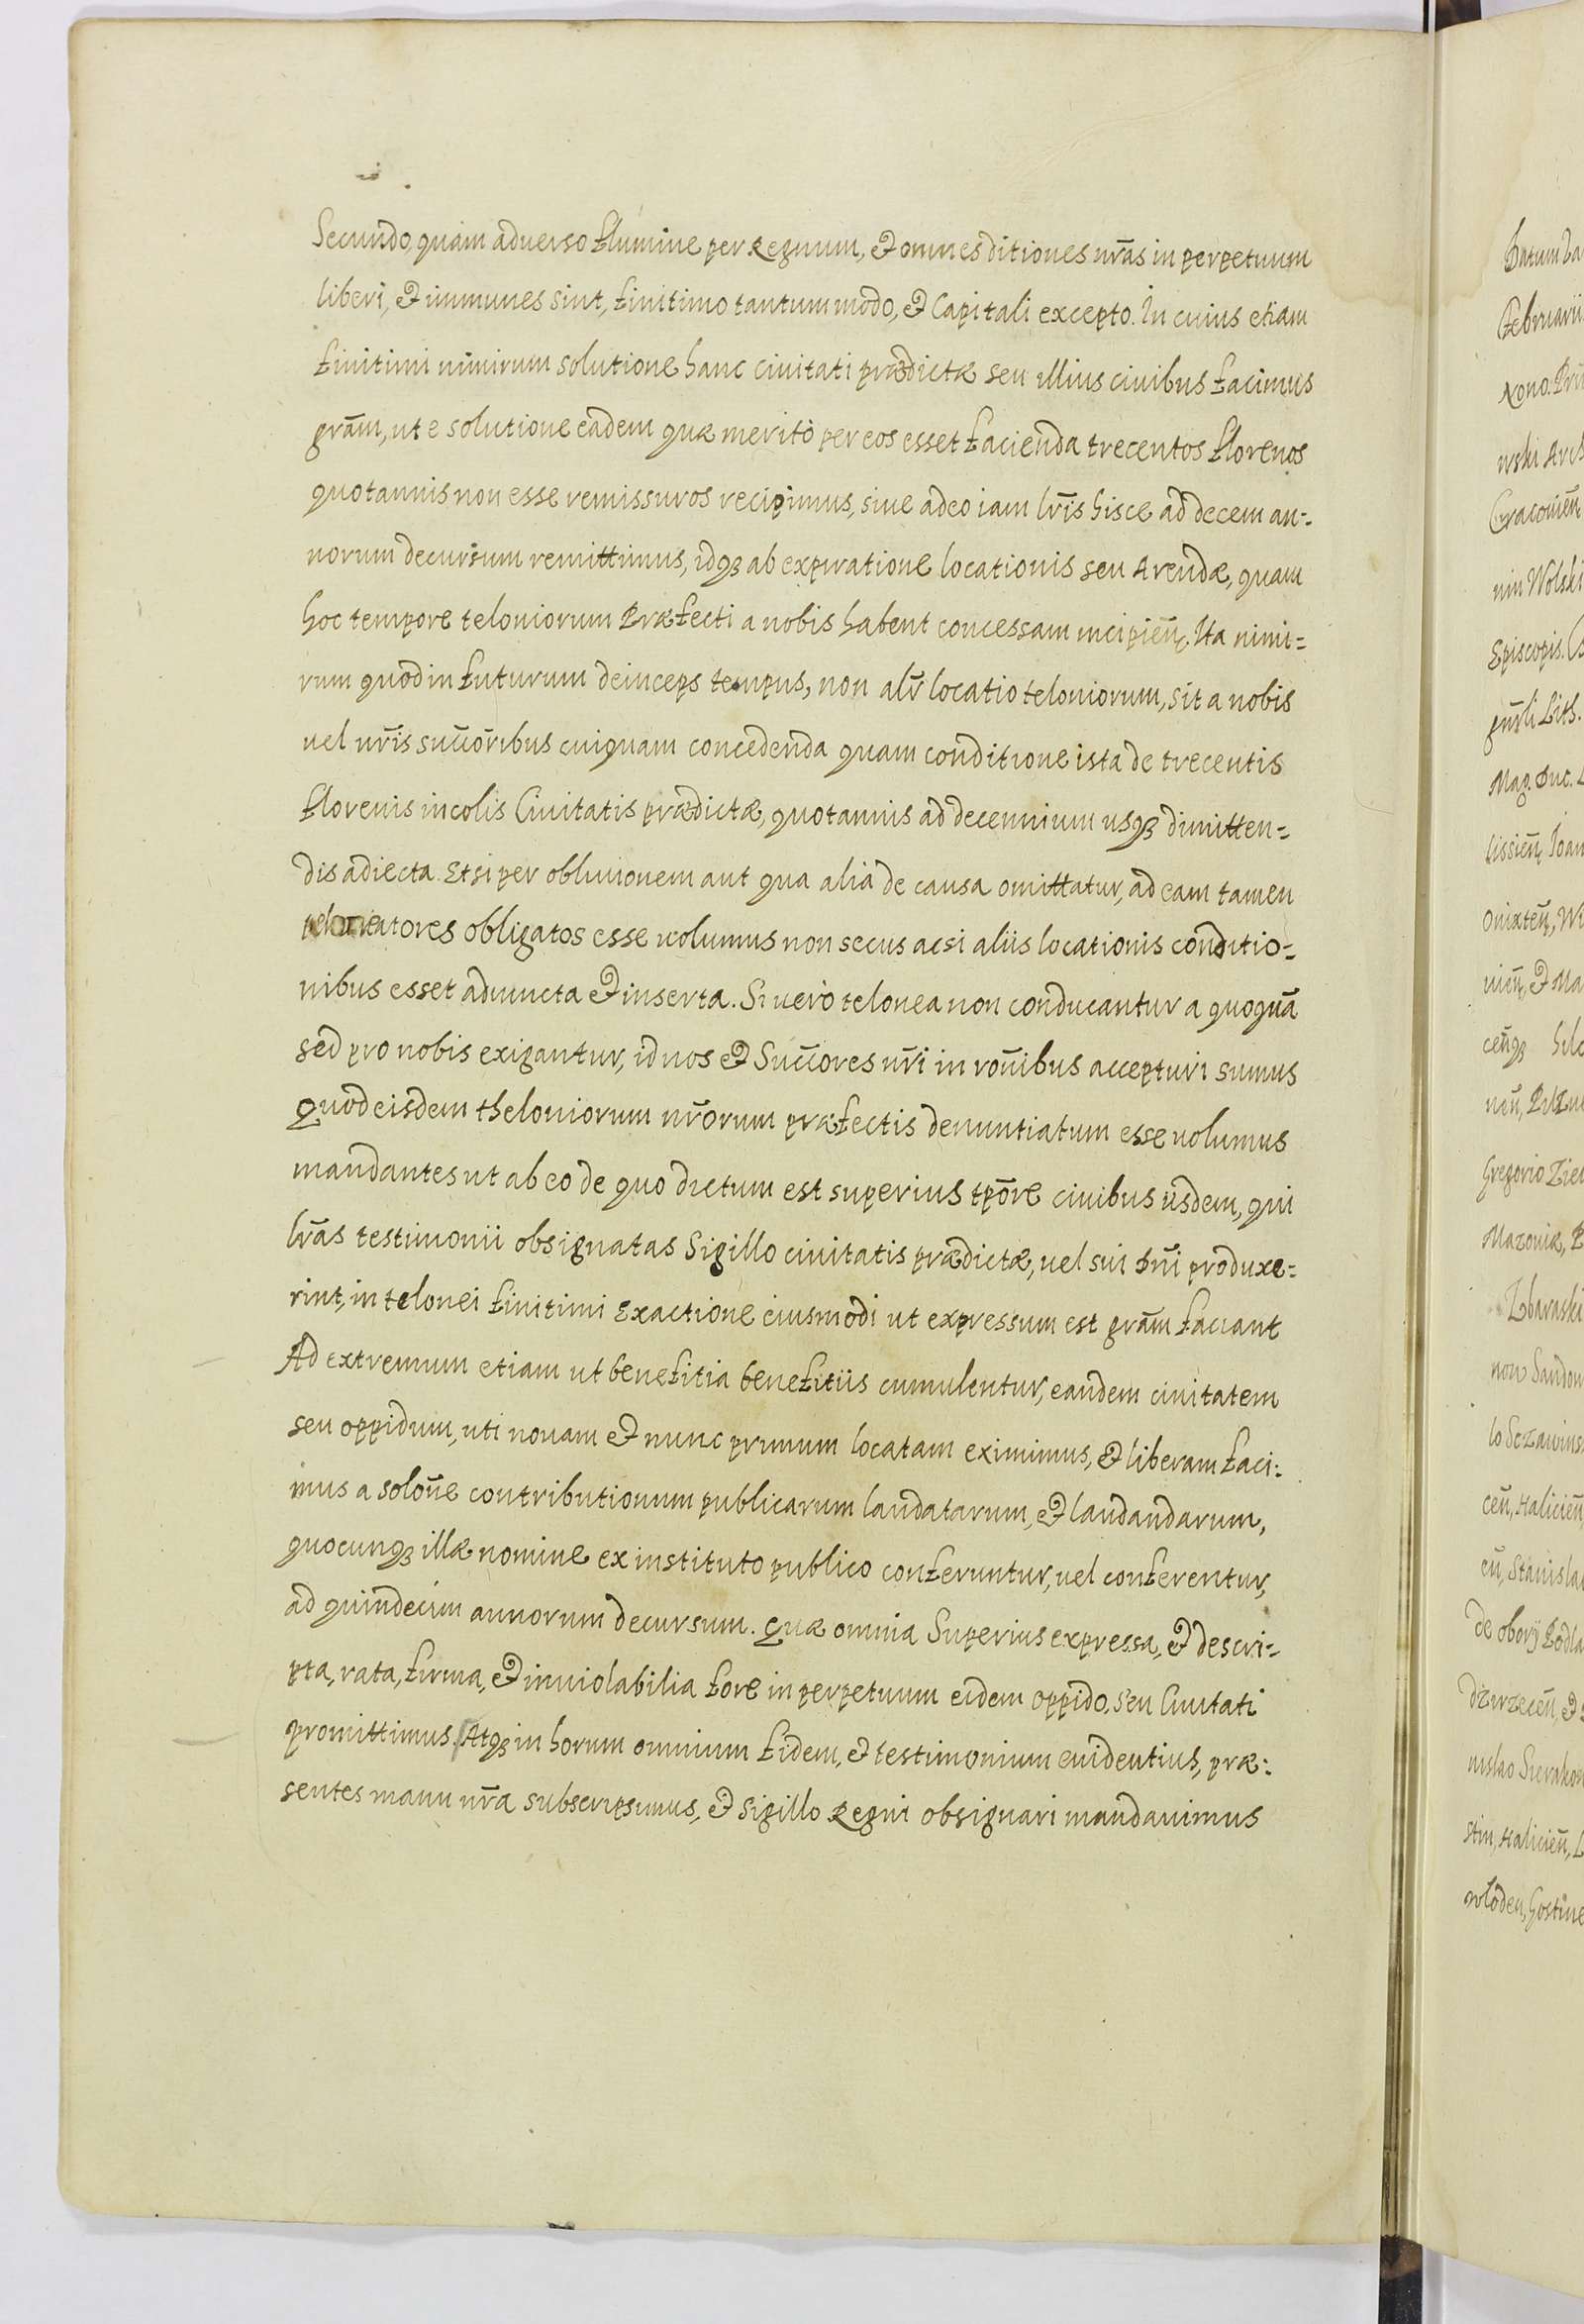 Secundo, quàm aduerso flumine per Regnum, & omnes ditiones nr̃as in perpetuum
liberi, & immunes sint, finitimo tantummodo, & Capitali excepto. In cuius etiam
finitimi nimirum solutione hanc ciuitati prædictæ seu illius ciuibus facimus
grãm, ut e solutione eadem quæ meritò per eos esset facienda trecentos florenos
quotannis non esse remissuros recipimus, siue adeo iam lr̃is hisce ad decem an=
norum decursum remittimus, idqȝ ab expiratione locationis seu Arendæ, quam
hoc tempore teloniorum Præfecti a nobis habent concessam incipieñ. Ita nimi=
rum quod in futurum deinceps tempus, non alr̃ locatio teloniorum, sit a nobis
uel nr̃is succõribus cuiquam concedenda quam conditione ista de trecentis
florenis incolis Ciuitatis prædictæ, quotannis ad decennium usqȝ dimitten=
dis adiecta. Etsi per obliuionem aut qua alia de causa omittatur, ad eam tamen
obligatos esse uolumus non secus acsi aliis locationis conditio=
nibus esset adiuncta & inserta. Si uerò telonea non conducantur a quoquã
sed pro nobis exigantur, id nos & Succõres nr̃i in rõnibus accepturi sumus
Quod eisdem theloniorum nr̃orum præfectis denuntiatum esse uolumus
mandantes ut ab eo de quo dictum est superius tpõre ciuibus iisdem, qui
lr̃as testimonii obsignatas Sigillo ciuitatis prædictæ, uel sui Dñi produxe=
rint, in telonei finitimi exactione eiusmodi ut expressum est grãm faciant
Ad extremum etiam ut benefitia benefitiis cumulentur, eandem ciuitatem
seu oppidum, uti nouam & nunc primum locatam eximimus, & liberam faci=
mus a solõne contributionum publicarum laudatarum, & laudandarum,
quocunqȝ illæ nomine ex instituto publico conferuntur, uel conferentur,
ad quindecim annorum decursum. Quæ omnia Superius expressa, & descri=
pta, rata, firma, & inuiolabilia fore in perpetuum eidem oppido, seu Ciuitati
promittimus. Atqȝ in horum omnium fidem, & testimonium euidentius, præ=
sentes manu nr̃a subscripsimus, & Sigillo Regni obsignari mandauimus
Datum
Februarii
Nono.
wski
Cracouieñ
Wolski
Episcopis.
Lith.
Mag. Duc.
Gregorio
Mazouiæ,
Zbaraski
Halicieñ
Stanisla
de obory
Halicieñ,